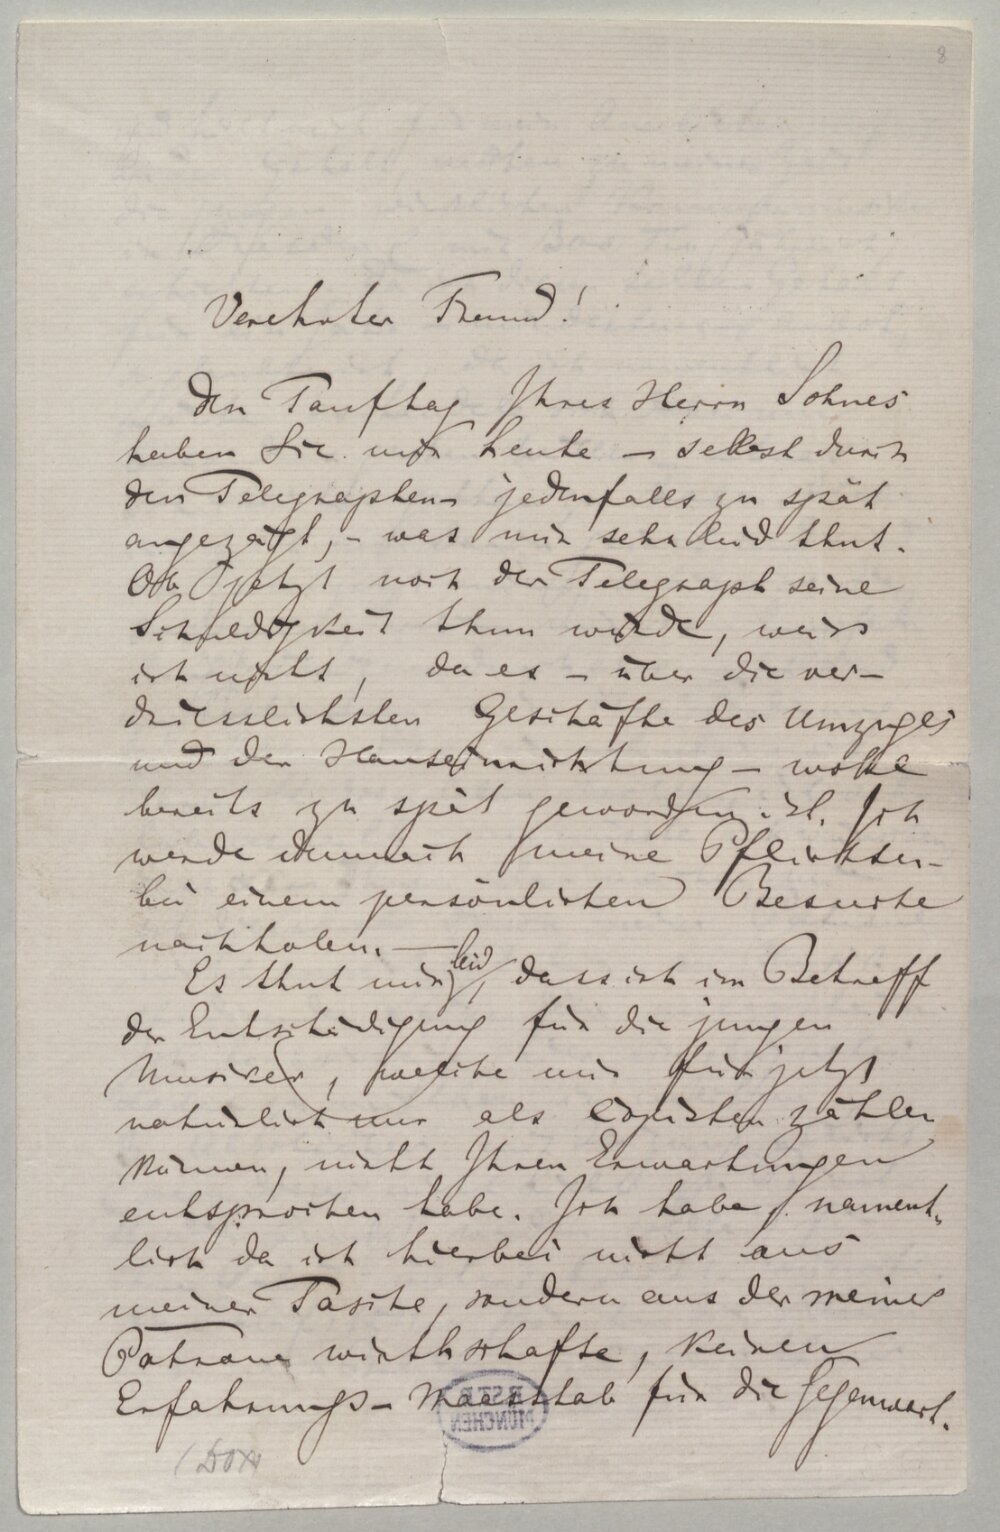 8
Verehrter Freund!
Den Tauftag Ihres Herrn Sohnes
haben Sie mir heute – selbst durch
den Telegraphen – jedenfalls zu spät
angezeigt, – was mir sehr leid thut.
Ob jetzt noch der Telegraph seine
Schuldigkeit thun würde, weiss
ich nicht, da es – über die ver-
driesslichsten Geschäfte des Umzuges
und der Hauseinrichtung – wohl
bereits zu spät geworden ist. Ich
werde demnach meine Pflichten
bei einem persönlichen Besuche
nachholen. —
Es thut mir leid, dass ich im Betreff
der Entschädigung für die jungen
Musiker, welche mir für jetzt
natürlich nur als Copisten zählen
können, nicht Ihren Erwartungen
entsprochen habe. Ich habe, nament-
lich da ich hierbei nicht aus
meiner Tasche, sondern aus der meiner
Patrone wirthschafte, keinen
Erfahrungs-Maasstab für die Gegenwart.
MÜNCHEN